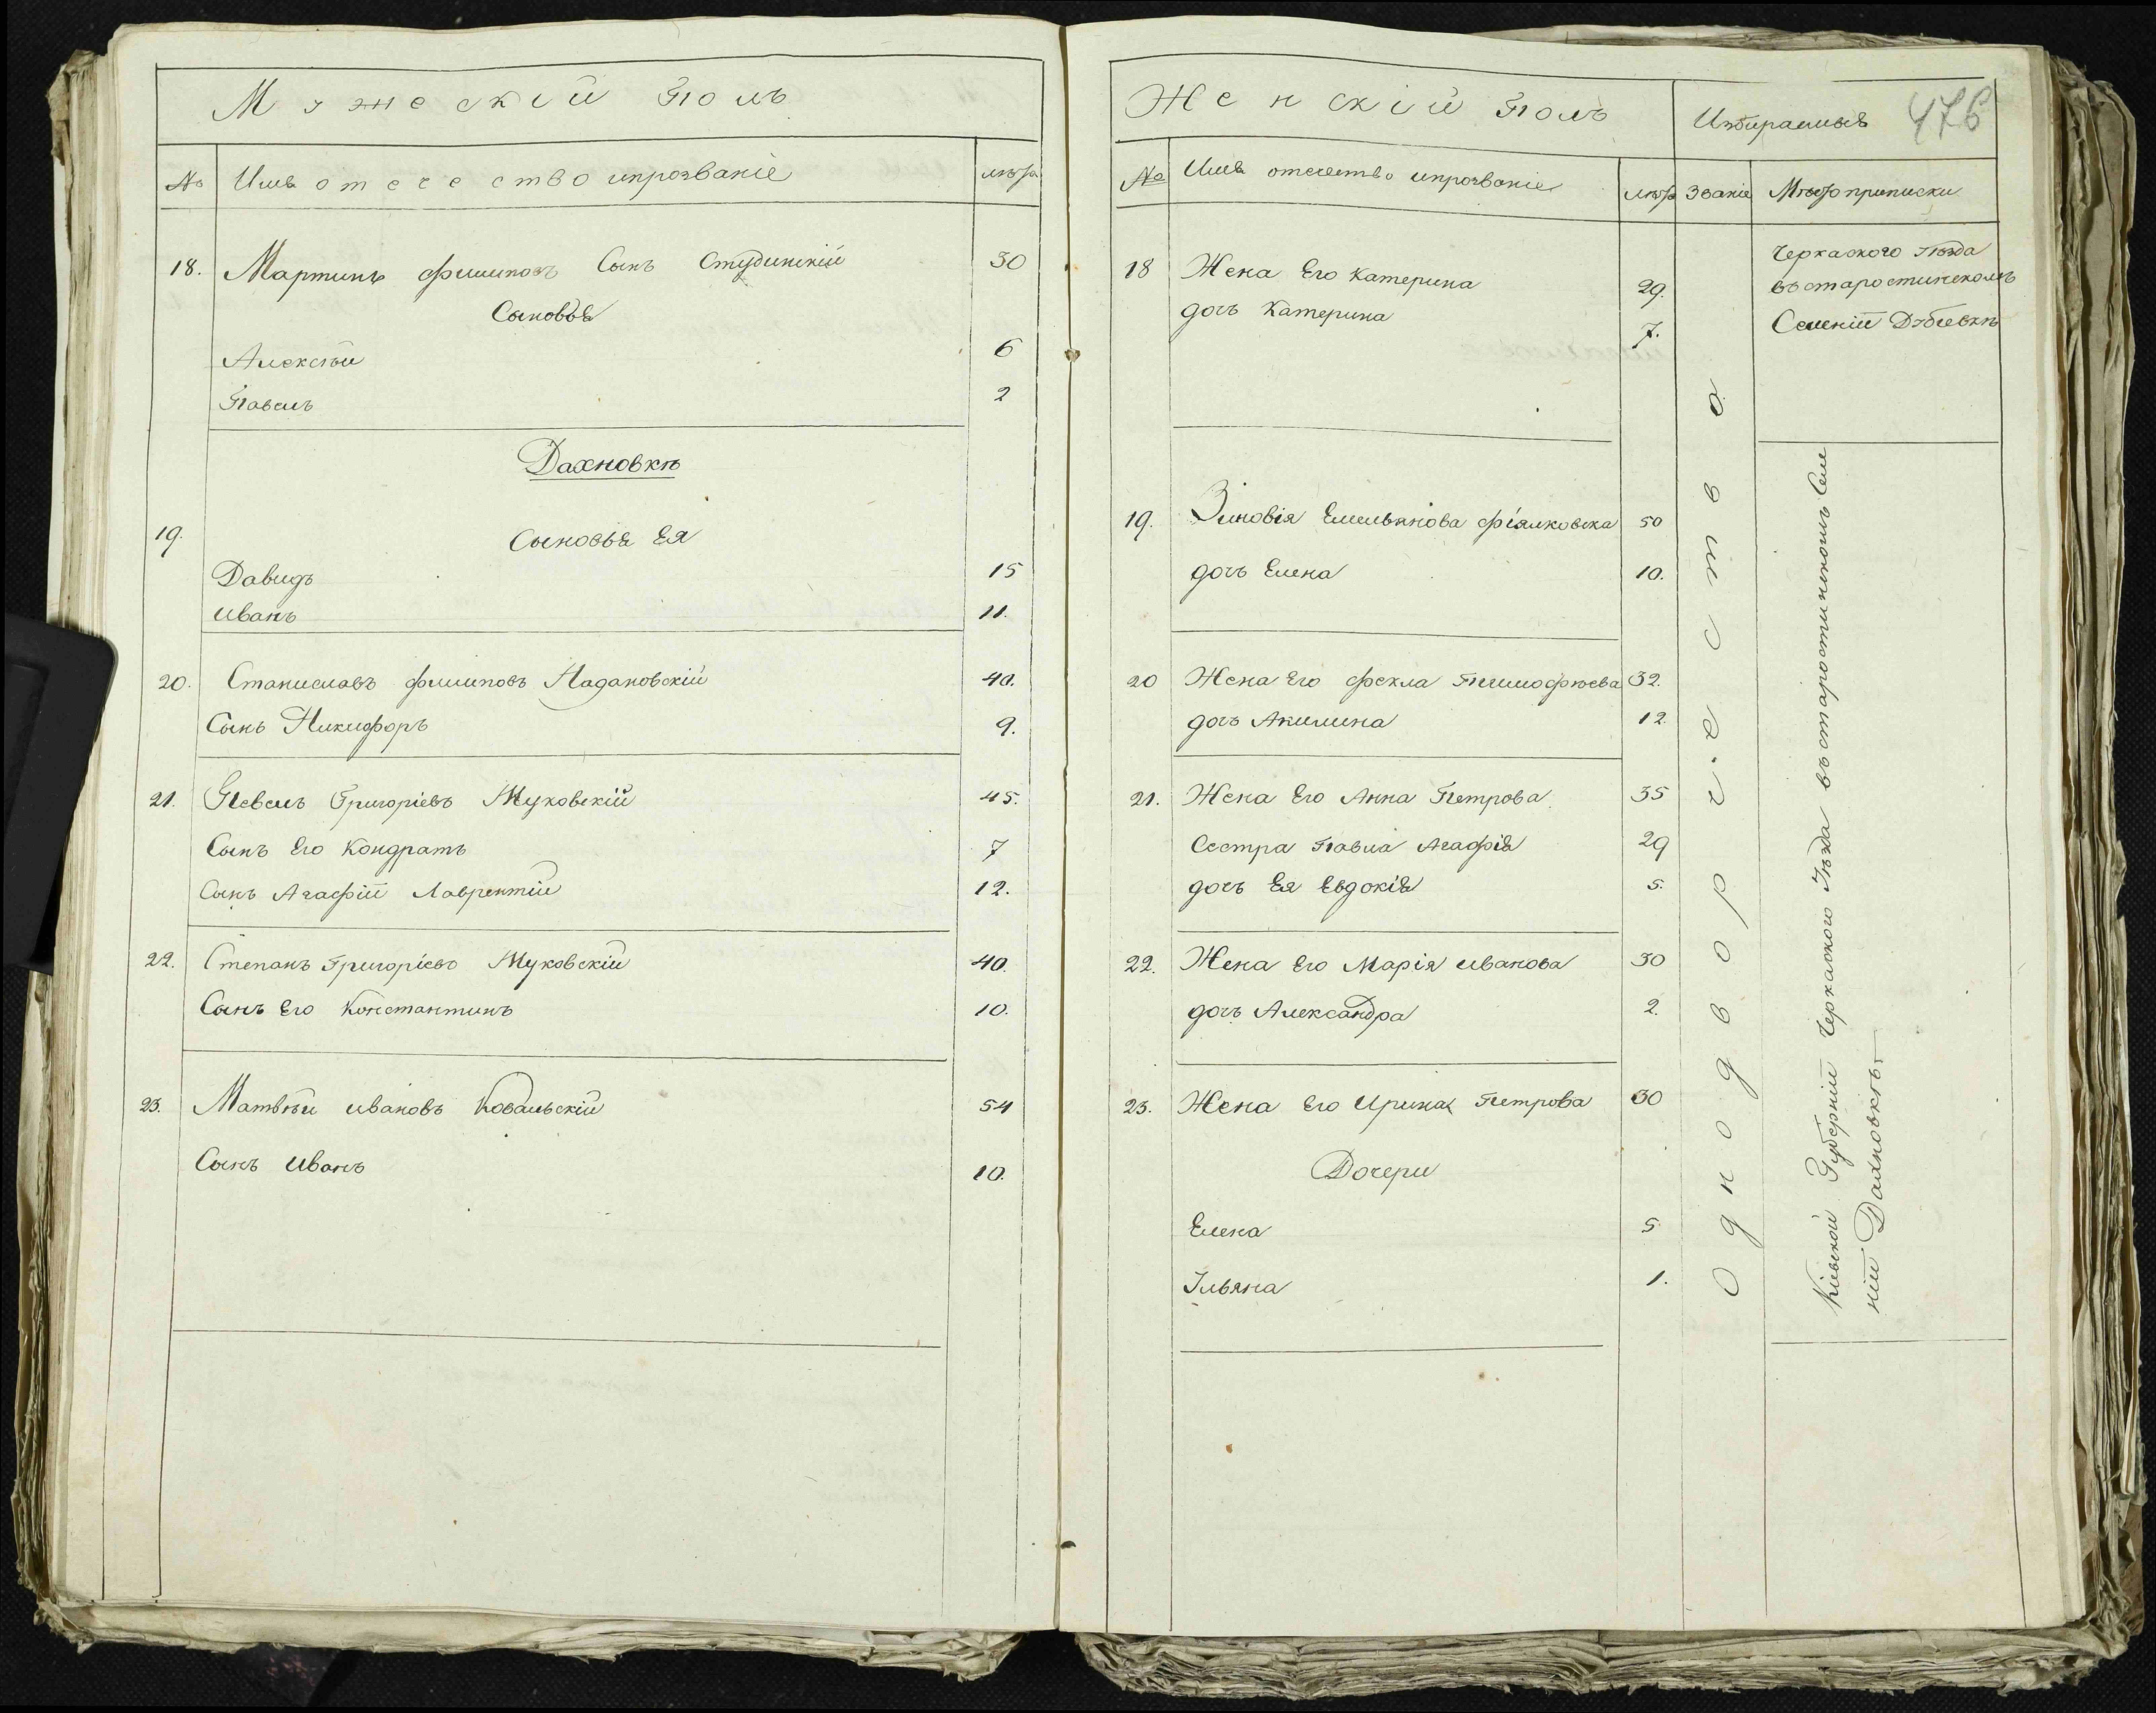 Мужескій Полъ
№ Имя отечество ипрозваніе лѣта
18. Мартинъ филиповъ Сынъ Студинскій 30
Сыновья
Алексѣй 6
Павелъ 2
Дахновкѣ
19. Сыновья Ея
Давидъ 15
Иванъ 11.
20. Станиславъ филиповъ Надановскій 40.
Сынъ Никифоръ 9.
21. Певелъ Григоріевъ Жуковскій 45.
Сынъ Его Кондратъ 7
Сынъ Агафіи Лаврентій 12.
22. Степанъ Григоріевъ Жуковскій 40.
Сынъ Его Константинъ 10.
23. Матвѣй ивановъ Ковальскій 54
Сынъ Иванъ 10.
Женскій Полъ Избираемыя 476
№ Имя отечество ипрозваніе лѣта Званіе Мѣсто приписки
18 Жена Его Катерина 29.
дочъ Катерина 7.
Черкаского Уѣзда
въ старостинскомъ
Селеніи Дубіевкѣ
19. Зиновія Емельянова фіялковска 50
дочъ Елена 10.
20 Жена Его фекла Тимофѣева 32.
дочъ Акилина 12.
21. Жена Его Анна Петрова 35
Сестра Павла Агафія 29
дочъ Ея Евдокія 5.
22. Жена Его Марія иванова 30
дочъ Александра 2.
23. Жена Его Ирина Петрова 30
Дочери
Елена 5.
Ульяна 1.
Однодворчества
Кіевской Губерніи Черкаского Уѣзда въ старостинскомъ Селе
ніи Дахновкѣ,